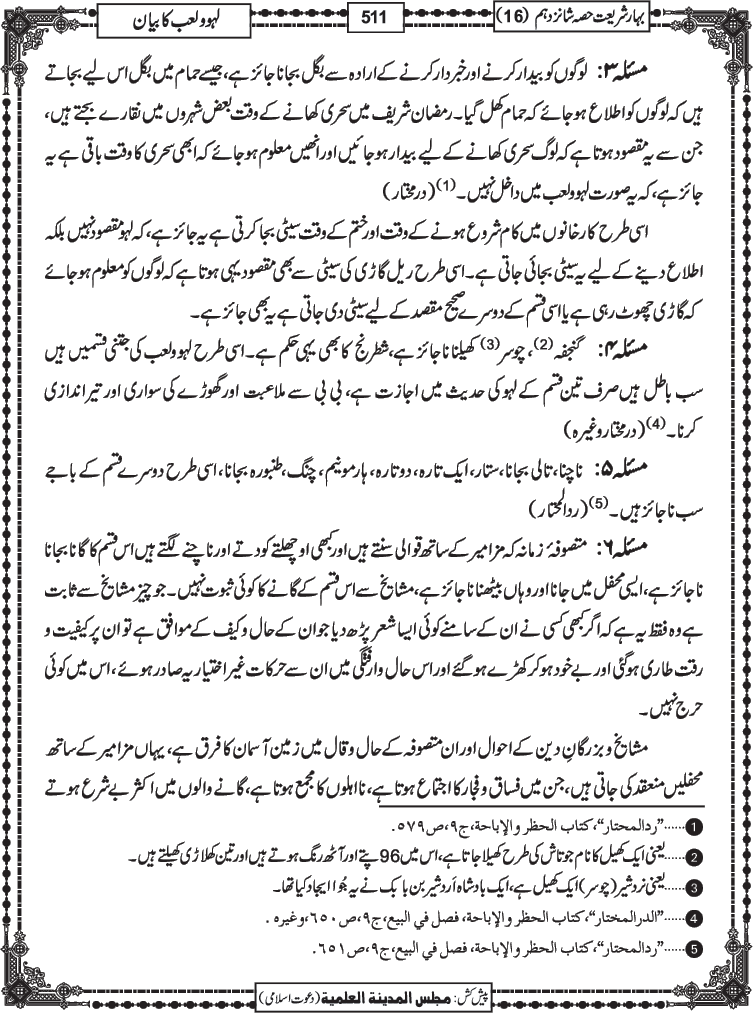 بہار شریعت حصہ شانزدہم (16)
511
لہو ولعب کا بیان
مسئلہ ۳: لوگوں کو بیدار کرنے اور خبردار کرنے کے ارادہ سے بگل بجانا جائز ہے، جیسے حمام میں بگل اس لیے بجاتے
ہیں کہ لوگوں کو اطلاع ہو جائے کہ حمام کھل گیا۔ رمضان شریف میں سحری کھانے کے وقت بعض شہروں میں نقارے بجتے ہیں،
جن سے یہ مقصود ہوتا ہے کہ لوگ سحری کھانے کے لیے بیدار ہو جائیں اور انھیں معلوم ہو جائے کہ ابھی سحری کا وقت باقی ہے یہ
جائز ہے، کہ یہ صورت لہو ولعب میں داخل نہیں۔ (1) (درمختار)
اسی طرح کارخانوں میں کام شروع ہونے کے وقت اور ختم کے وقت سیٹی بجا کرتی ہے یہ جائز ہے، کہ لہو مقصود نہیں بلکہ
اطلاع دینے کے لیے یہ سیٹی بجائی جاتی ہے۔ اسی طرح ریل گاڑی کی سیٹی سے بھی مقصود یہی ہوتا ہے کہ لوگوں کو معلوم ہو جائے
کہ گاڑی چھوٹ رہی ہے یا اسی قسم کے دوسرے صحیح مقصد کے لیے سیٹی دی جاتی ہے یہ بھی جائز ہے۔
مسئلہ ۴: گنجفہ (2)، چوسر (3) کھیلنا ناجائز ہے، شطرنج کا بھی یہی حکم ہے۔ اسی طرح لہو ولعب کی جتنی قسمیں ہیں
سب باطل ہیں صرف تین قسم کے لہو کی حدیث میں اجازت ہے، بی بی سے ملاعبت اور گھوڑے کی سواری اور تیر اندازی
کرنا۔ (4) (درمختار وغیرہ)
مسئلہ ۵: ناچنا، تالی بجانا، ستار، ایک تارہ، دو تارہ، ہارمونیم، چنگ، طنبورہ بجانا، اسی طرح دوسرے قسم کے باجے
سب ناجائز ہیں۔ (5) (ردالمحتار)
مسئلہ ۶: متصوفۂ زمانہ کہ مزامیر کے ساتھ قوالی سنتے ہیں اور کبھی اوچھلتے کودتے اور ناچنے لگتے ہیں اس قسم کا گانا بجانا
ناجائز ہے، ایسی محفل میں جانا اور وہاں بیٹھنا ناجائز ہے، مشایخ سے اس قسم کے گانے کا کوئی ثبوت نہیں۔ جو چیز مشایخ سے ثابت
ہے وہ فقط یہ ہے کہ اگر کبھی کسی نے ان کے سامنے کوئی ایسا شعر پڑھ دیا جو ان کے حال و کیف کے موافق ہے تو ان پر کیفیت و
رقت طاری ہوگئی اور بے خود ہو کر کھڑے ہوگئے اور اس حال وارفتگی میں ان سے حرکات غیر اختیاریہ صادر ہوئے، اس میں کوئی
حرج نہیں۔
مشایخ و بزرگانِ دین کے احوال اور ان متصوفہ کے حال و قال میں زمین آسمان کا فرق ہے، یہاں مزامیر کے ساتھ
محفلیں منعقد کی جاتی ہیں، جن میں فساق و فجار کا اجتماع ہوتا ہے، نااہلوں کا مجمع ہوتا ہے، گانے والوں میں اکثر بے شرع ہوتے
1 ......"ردالمحتار"، کتاب الحظر والإباحة، ج۹، ص۵۷۹.
2 ......یعنی ایک کھیل کا نام جو تاش کی طرح کھیلا جاتا ہے، اس میں 96 پتے اور آٹھ رنگ ہوتے ہیں اور تین کھلاڑی کھیلتے ہیں۔
3 ......یعنی نردشیر (چوسر) ایک کھیل ہے، ایک بادشاہ اَردشیر بن بابک نے یہ جُوا ایجاد کیا تھا۔
4 ......"الدرالمختار"، کتاب الحظر والإباحة، فصل في البیع، ج۹، ص۶۵۰، وغیرہ .
5 ......"ردالمحتار"، کتاب الحظر والإباحة، فصل في البیع، ج۹، ص۶۵۱.
پیش کش: مجلس المدینة العلمیة (دعوت اسلامی)